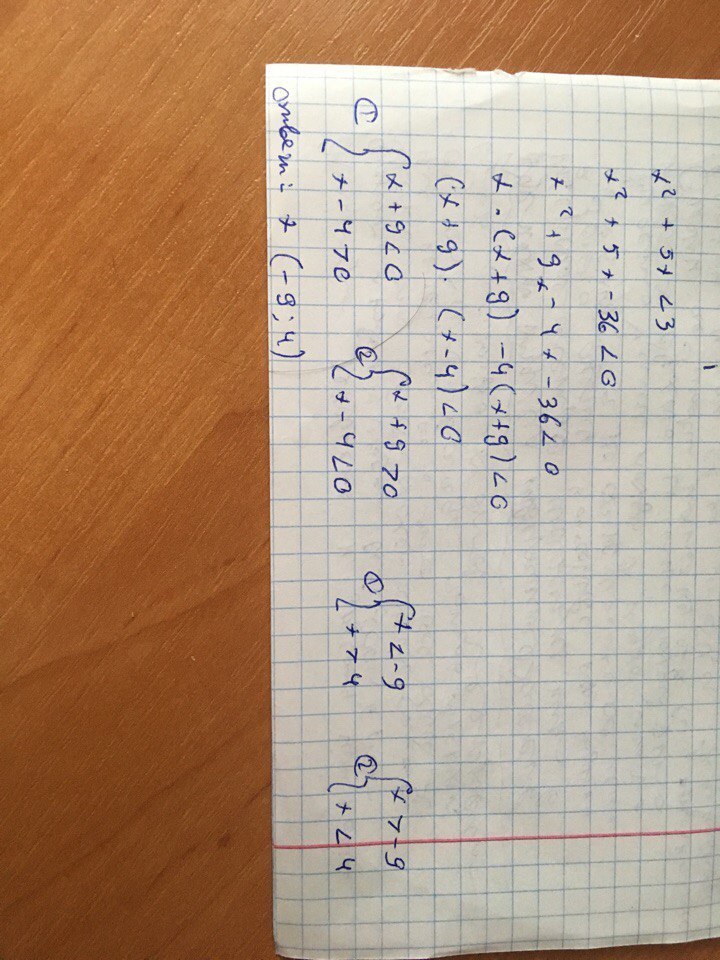 x² + 5x < 3
x² + 5x - 36 < 0
x² + 9x - 4x - 36 < 0
x · (x + 9) - 4(x + 9) < 0
(x + 9) · (x - 4) < 0
① { x + 9 < 0 ② { x + 9 > 0 ① { x < -9 ② { x > -9
x - 4 > 0 x - 4 < 0 x > 4 x < 4
Ответ: x (-9; 4)